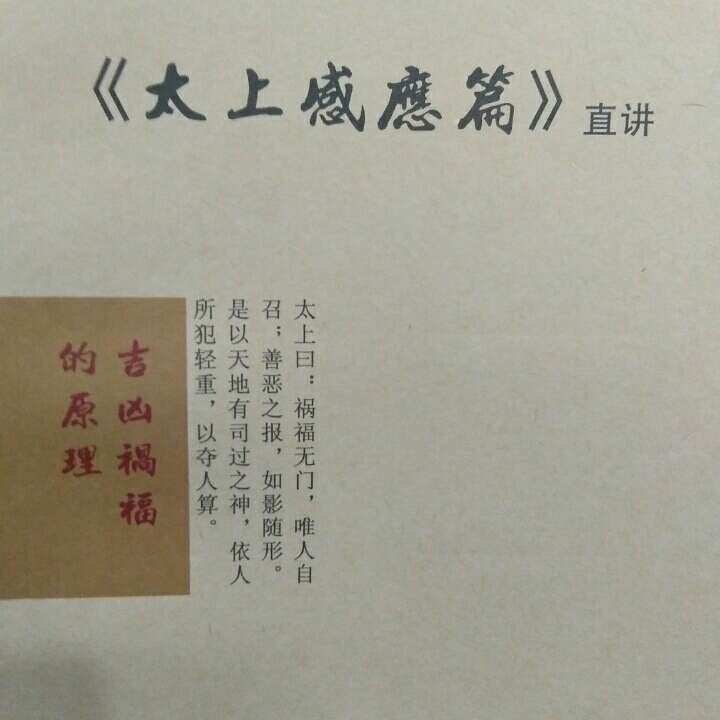 《太上感應篇》直讲
太上曰：祸福无门，唯人自
召；善恶之报，如影随形。
是以天地有司过之神，依人
所犯轻重，以夺人算。
吉凶禍福
的原理